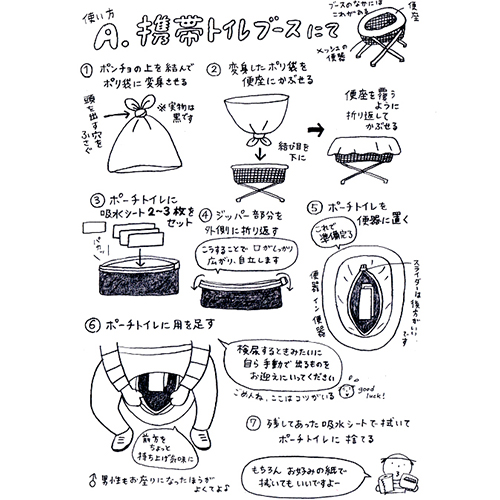 使い方
A. 携帯トイレブースにて
ブースのなかには
これがある
便座
メッシュの
便器
① ポンチョの上を結んで
ポリ袋に変身させる
頭を出す穴を
ふさぐ
※実物は
黒です
② 変身したポリ袋を
便座にかぶせる
結び目を
下に
便座を覆う
ように
折り返して
かぶせる
③ ポーチトイレに
吸水シート2〜3枚を
セット
パカッ
④ ジッパー部分を
外側に折り返す
こうすることで 口がしっかり
広がり、自立します
⑤ ポーチトイレを
便器に置く
これで
準備完了
便器イン便器
スライダーは後方がいいです
⑥ ポーチトイレに用を足す
検尿するときみたいに
自ら手動で出るものを
お迎えにいってください
ごめんね、ここはコツがいる
good
luck!
前方を
ちょっと
持ち上げ気味に
♂男性もお座りになったほうが
よくてよ♪
⑦ 残してあった吸水シートで拭いて
ポーチトイレに捨てる
もちろん お好みの紙で
拭いてもいいですよー